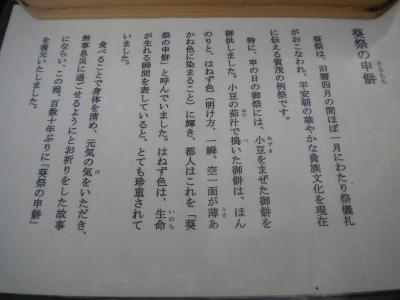 葵祭の申餅
さるもち
葵祭は、旧暦四月の間ほぼ一月にわたり祭儀礼
がおこなわれ、平安朝の華やかな貴族文化を現在
に伝える賀茂の例祭です。
特に、申の日の御祭には、小豆をまぜた御餅を
あずき
御供しました。小豆の茹汁で搗いた御餅は、ほん
ゆで
つ
のりと、はねず色(明け方、一瞬、空一面が薄あ
うす
かね色に染まること)に輝き、都人はこれを「葵
祭の申餅」と呼んでいました。はねず色は、生命
いのち
が生れる瞬間を表していると、とても珍重されて
いました。
食べることで身体を清め、元気の気をいただき、
け
無事息災に過ごせるようにとお祈りをした故事
にならい、この程、百数十年ぶりに「葵祭の申餅」
を復元いたしました。